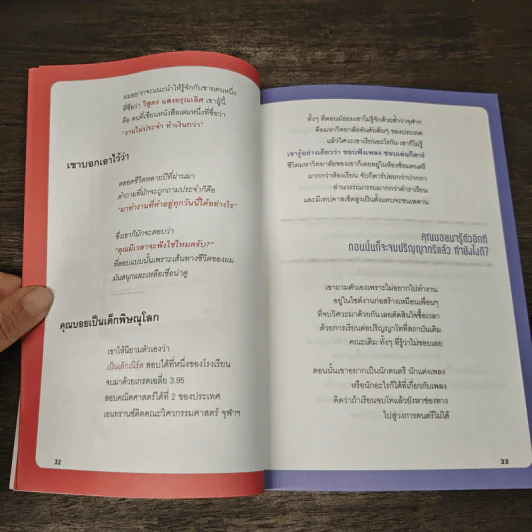 ผมอยากจะแนะนำให้รู้จักกับชายคนหนึ่ง
ที่ชื่อว่า วิสูตร แสงอรุณเลิศ เขาผู้นี้
คือ คนที่เขียนหนังสือเล่มหนึ่งที่ชื่อว่า
"งานไม่ประจำ ทำเงินกว่า"
เขาบอกเอาไว้ว่า
ตลอดชีวิตหลายปีที่ผ่านมา
คำถามที่มักจะถูกถามประจำก็คือ
"มาทำงานที่ทำอยู่ทุกวันนี้ได้อย่างไร"
ซึ่งเขาก็มักจะตอบว่า
"คุณมีเวลาจะฟังใช่ไหมครับ?"
ที่ตอบแบบนั้นเพราะเส้นทางชีวิตของผม
มันสนุกและเหลือเชื่อน่าดู
คุณบอยเป็นเด็กพิษณุโลก
เขาให้นิยามตัวเองว่า
เป็นเด็กเนิร์ด สอบได้ที่หนึ่งของโรงเรียน
จบมาด้วยเกรดเฉลี่ย 3.95
สอบคณิตศาสตร์ได้ที่ 2 ของประเทศ
เอนทรานซ์ติดคณะวิศวกรรมศาสตร์ จุฬาฯ
32
ทั้งๆ ที่ตอนมัธยมเขาไม่รู้จักด้วยซ้ำว่าจุฬาฯ
คือมหาวิทยาลัยอันดับต้นๆ ของประเทศ
แล้ววิศวะเขาเรียนอะไรกัน เขาก็ไม่รู้
เขารู้อย่างเดียวว่า ชอบฟังเพลง ชอบเล่นกีตาร์
ชีวิตมหาวิทยาลัยของเขาก็เลยอยู่ในห้องซ้อมดนตรี
มากกว่าห้องเรียน จับกีตาร์บ่อยกว่าปากกา
อ่านวรรณกรรมมากกว่าตำราเรียน
และมีเทปคาสเซ็ตสูงเป็นตั้งแทบจะชนเพดาน
คุณบอยมารู้ตัวอีกที
ตอนนั้นก็จะจบปริญญาตรีแล้ว ทำยังไงดี?
เขาถามตัวเองเพราะไม่อยากไปทำงาน
อยู่ในไซต์งานก่อสร้างเหมือนเพื่อนๆ
ที่จบวิศวะมาด้วยกัน เลยตัดสินใจซื้อเวลา
ด้วยการเรียนต่อปริญญาโทที่สถาบันเดิม
คณะเดิม ทั้งๆ ที่รู้ว่าไม่ชอบเลย
ตอนนั้นเขาอยากเป็นนักดนตรี นักแต่งเพลง
หรือนักอะไรก็ได้ที่เกี่ยวกับเพลง
คิดว่าถ้าเรียนจบโทแล้วยังหาช่องทาง
ไปสู่วงการดนตรีไม่ได้
33